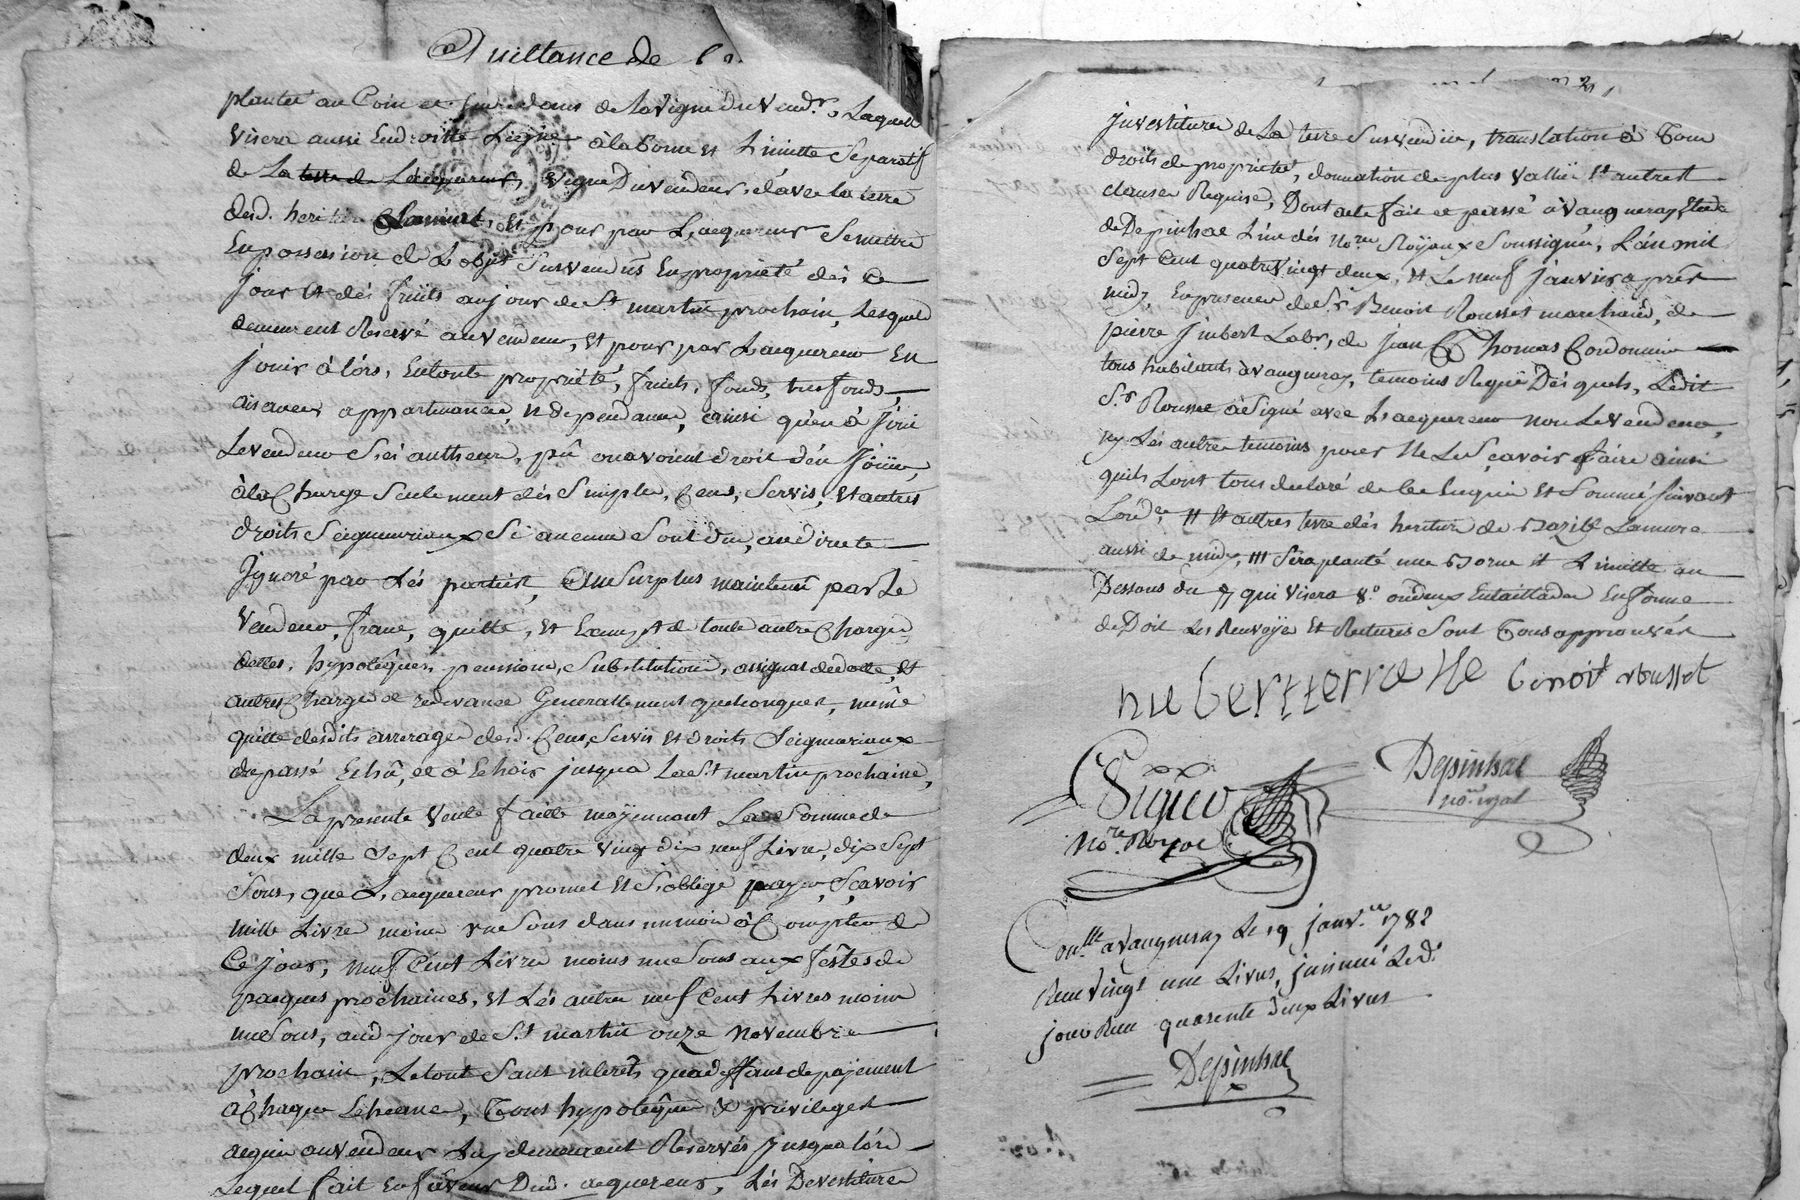 Quittance de
plantée au Coin et dans de la vigne du vendr, Laquelle
visera aussi En droitte Ligne à la borne et Limitte Separatif
de La terre de Lacquereur, vigne Du vendeur, d'avec la terre
desd. heritiers Lamure, et pour par L'acquereur Se mettre
En possession de L'objet Sus vendus En proprieté dés ce
jour et dés fruits au jour de St martin prochain, Lesquels
demeurent Reservé au vendeur, Et pour par Lacquereur En
jouir à lórs, En toute proprieté, fruits, fonds, tres fonds,
aisances appartenances, et dependances, ainsi qu'en à Jouï
Le vendeur Ses autheurs, pû ou avoient droit d'én Joüir,
à la Charge Seulement dés Simples, Cens, Servis, et autres
droits Seigneuriaux Si aucuns Sont dus, au directe
Ignoré par Lés parties, Au Surplus maintenu par Le
Vendeur, franc, quitte, et Exempt de toute autre Charges,
dettes, hypotêques, pensions, Substitutions, assignat de dotte, et
autres Charges et redevances Generallement quelconques, même
quitte desdits arrerages desd. Cens, Servis et droits Seigneuriaux
du passé Echû, et à Echoir jusqua La St martin prochaine,
La presente vente faitte moÿennant La Somme de
deux mille Sept Cent quatre vingt dix neuf Livres, dix Sept
Sous, que L'acquereur promet et S'oblige payer, Sçavoir
mille Livres moins un Sous dans un mois à Compter de
Ce jour, neuf Cent Livres moins un Sous aux fêstes de
pacques prochaines, et Lés autres neuf Cent Livres moins
un Sous, aud. jour de St martin onze Novembre
prochain, Le tout Sans interêts qu'a deffaut de paÿement
à Chaque Echeance, Tous hypotêque & privileges
acquis au vendeur Luy demeurent Reservés Jusqu'a lórs
Lequel fait En faveur Dud. acquereur, Lés Devestiture
Investiture de La terre Sus vendue, translation de Tous
droits de proprieté, donnation de plus vallüe et autres
clauses Requise, Dont acte fait et passé à Vaugneray Etude
de Depinhac L'un dés Nores Royaux Soussignés, L'an mil
Sept Cent quatre vingt deux, et Le neuf janvier aprés
midy, En presence de Sr. Benoit Rousset marchand, de
pierre Jmbert Labr., de jean Thomas Cordonnier
tous habitants à vaugneray, temoins Requis Desquels, Ledit
Sr. Rousset à Signé avec Lacquereur non Le vendeur,
ny Lés autres temoins pour ne Le Sçavoir faire ainsi
quils L'ont tous declaré de Ce Enquis et Sommé Suivant
L'orde. # et autres terre dés heritiers de Lamure
aussi de midy, ### Sera planté une Borne et Limitte au
Dessous du qui visera En forme
de Doit Les Renvoÿs et Ratures Sont Tous approuvés
hubert terraille benoit rousset
Depinhac
nore. royal
Nore. Royal
Conlle a Vaugneray Le 19 janver 1782
Reçu vingt une Livres, jnsinué Led.
jour Reçu quarente deux Livres
Depinhac